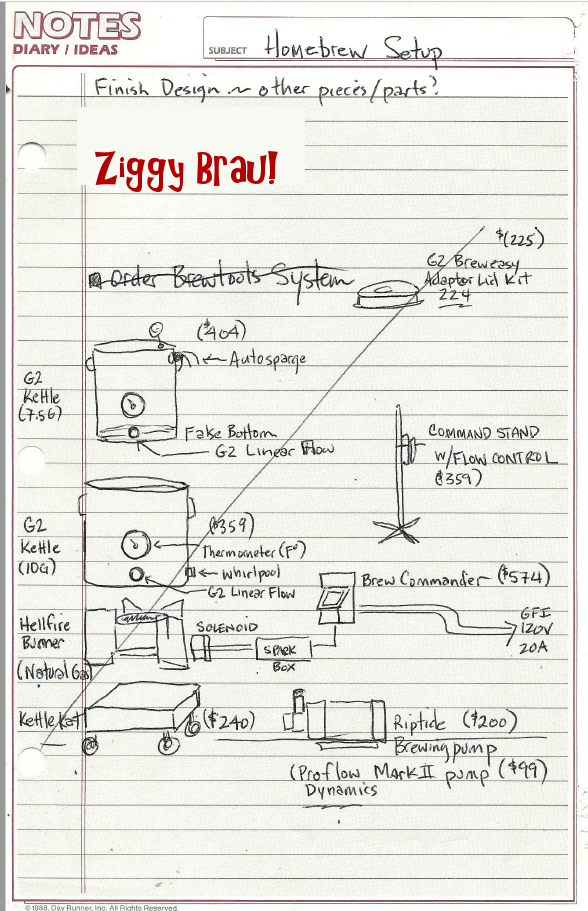 NOTES
DIARY / IDEAS
SUBJECT Homebrew Setup
Finish Design ~ other pieces/parts?
Ziggy Brau!
$(225)
G2 Breweasy
Adaptor Lid Kit
224
order Brewtools System
($404)
Autosparge
G2
Kettle
(7.5G)
False Bottom
G2 Linear Flow
COMMAND STAND
W/FLOW CONTROL
($359)
G2
Kettle
(10G)
($359)
Thermometer (F°)
Whirlpool
G2 Linear Flow
Brew Commander ($574)
GFI
120V
20A
Hellfire
Burner
(Natural Gas)
SOLENOID
SPARK
BOX
Kettle Kart
($240)
Riptide ($200)
Brewing pump
(Proflow Mark II pump ($99)
Dynamics
©1988. Day Runner, Inc. All Rights Reserved.